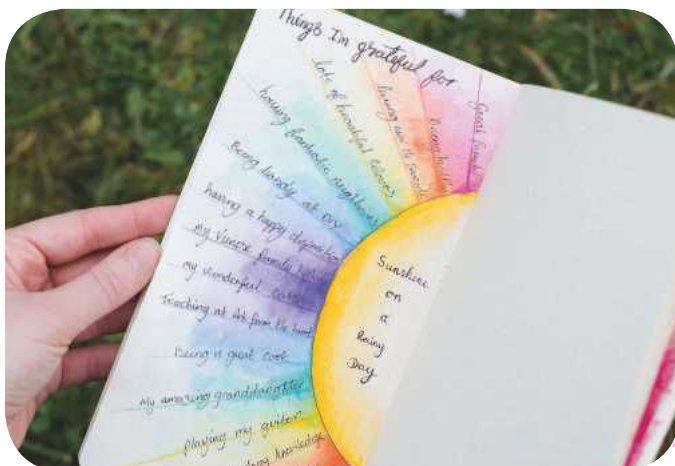 Things I'm grateful for
Great
lots of beautiful
having fantastic neighbours
Being handy at DIY
having a happy disposition
my family
my wonderful
Teaching at Art from the heart
Being a great cook
My amazing granddaughter
playing my guitar
knowledge
Sunshine
on
a
Rainy
Day